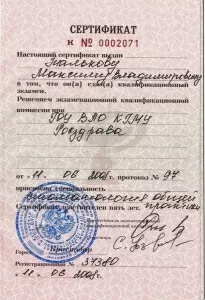 СЕРТИФИКАТ
К № 0002071
Настоящий сертификат выдан
Малькову
Максиму Владимировичу
в том, что он(а) сдал(а) квалификационный
экзамен.
Решением экзаменационной квалификационной
комиссии при
ГОУ ВПО КГМУ
Росздрава
от 11. 06 2008 г. протокол № 97
присвоена специальность
стоматология общей
практики
Сертификат действителен пять лет.
Регистрационный № 37380
11 06 2008 г.